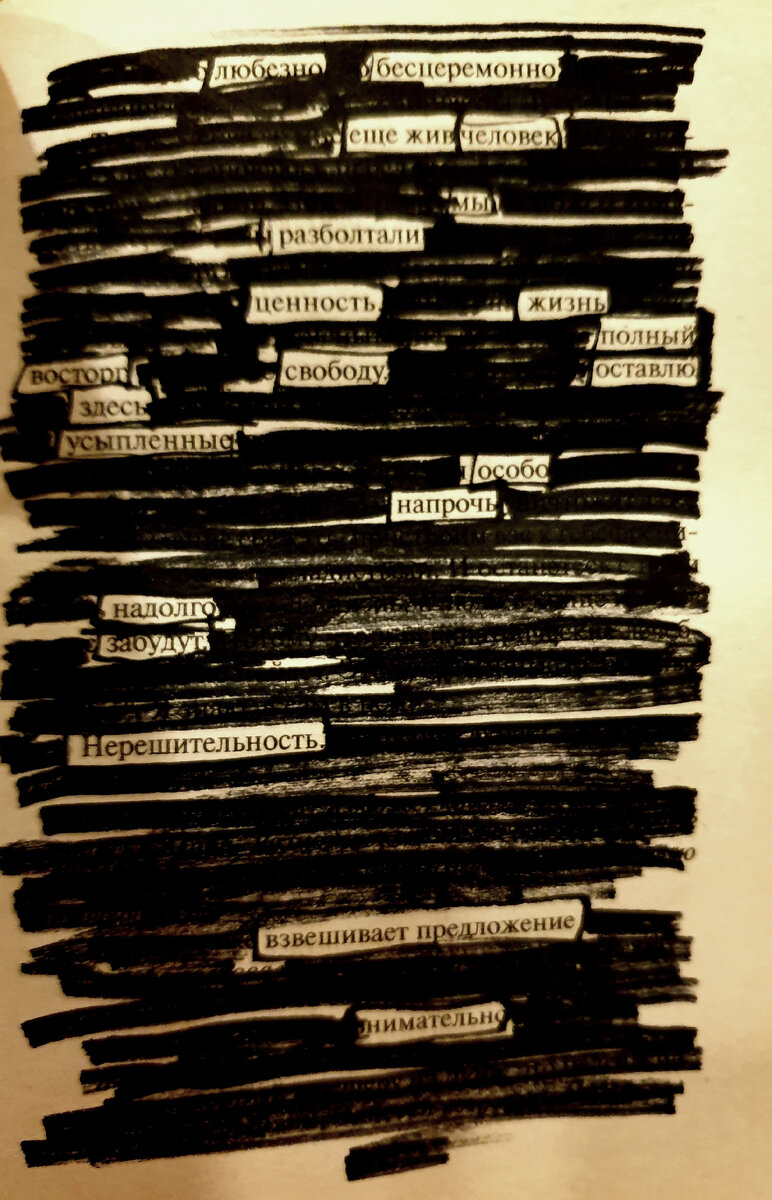 любезно бесцеремонно
еще жив человек
мы
разболтали
ценность жизнь
полный
восторг свободу. оставлю
здесь
усыпленные
особо
напрочь
надолго
забудут.
Нерешительность.
взвешивает предложение
нимательно